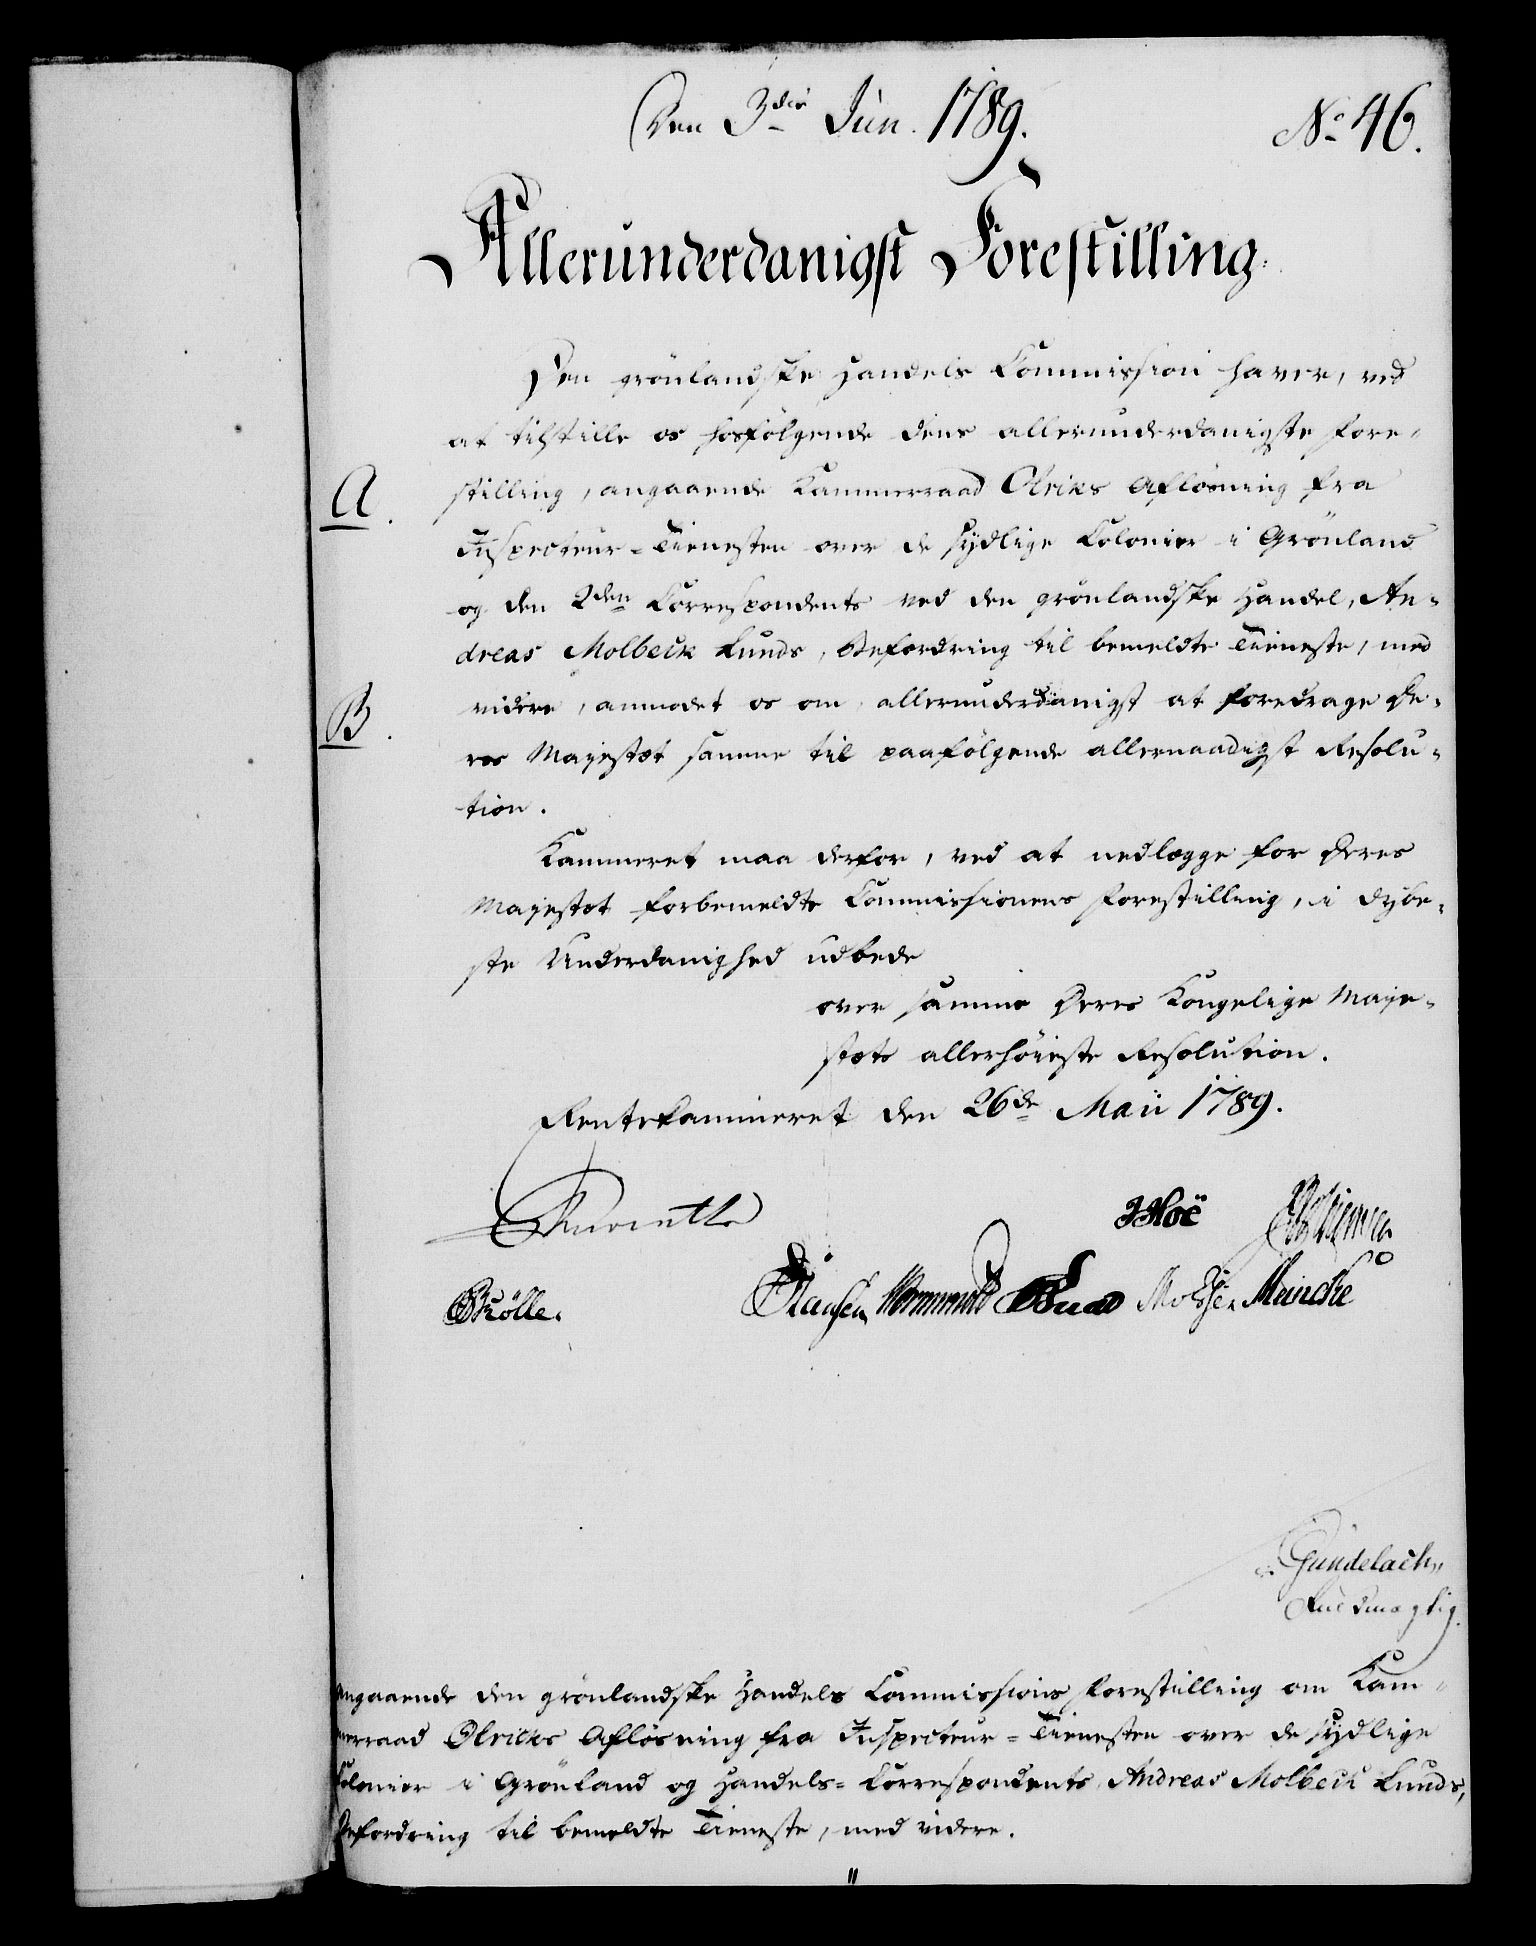 Den 3die Jun. 1789.
No 46.
Allerunderdanigst Forestilling.
Den grönlandske Handels Commission haver, ved
at tilstille os hosfölgende dens allerunderdanigste Fore-
A.
stilling, angaaende Kammerraad Olriks Aflösning fra
Inspecteur-Tienesten over de sydlige Colonier i Grönland
og den 2den Correspondents ved den grönlandske Handel, An-
dreas Molbeck Lunds, Befordring til bemeldte Tieneste, med
B.
videre, anmodet os om allerunderdanigst at foredrage De-
res Majestæt samme til paafölgende allernaadigst Resolu-
tion.
Kammeret maa derfor, ved at nedlægge for Deres
Majestæt forbemeldte Commissionens Forestilling, i dybe-
ste Underdanighed udbede
over samme Deres Kongelige Maje-
stæts allerhöieste Resolution.
Rentekammeret den 26de Maii 1789.
JHoë
Krölle.
Hansen Wormskiold Meincke
Gundelach,
Fuldmægtig.
Angaaende den grönlandske Handels Commissions Forestilling om Kam-
merraad Olricks Aflösning fra Inspecteur-Tienesten over de sydlige
Colonier i Grönland og Handels-Correspondents, Andreas Molbeck Lunds,
Befordring til bemeldte Tieneste, med videre.